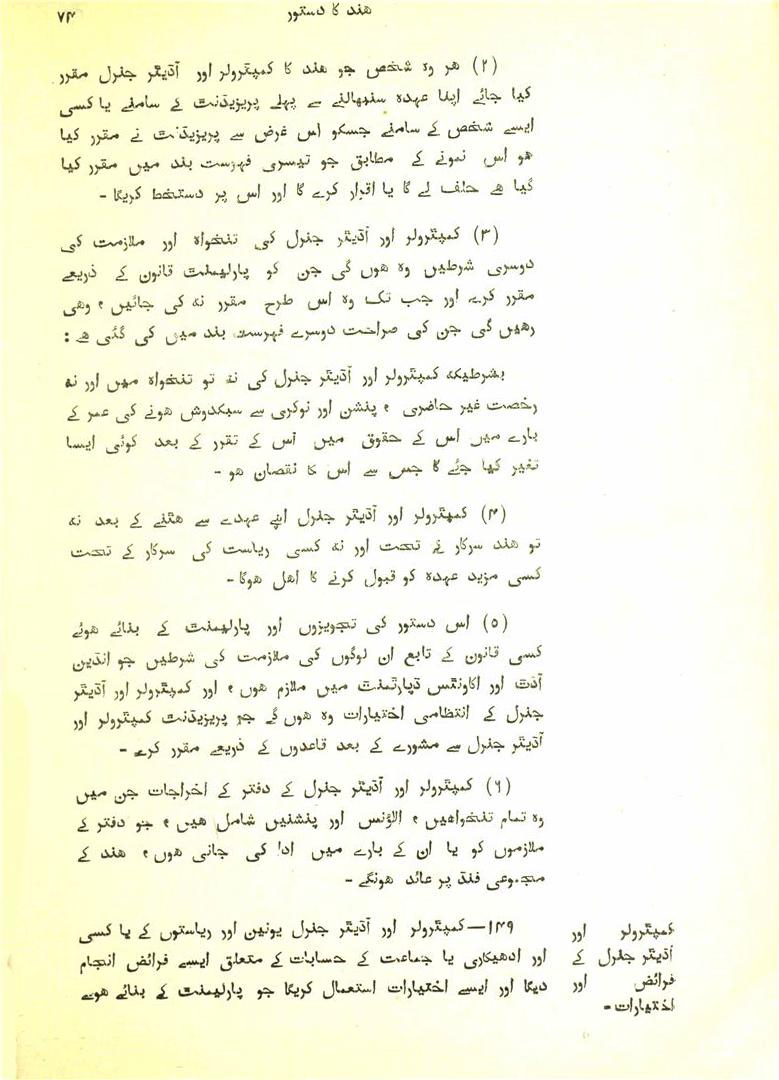 ھند کا دستور
۷۴
(۲) ھر وہ شخص جو ھند کا کمپٹرولر اور آڈیٹر جنرل مقرر
کیا جائے اپنا عہدہ سنبھالنے سے پہلے پریزیڈنٹ کے سامنے یا کسی
ایسے شخص کے سامنے جسکو اس غرض سے پریزیڈنٹ نے مقرر کیا
ھو اس نمونے کے مطابق جو تیسری فہرست بند میں مقرر کیا
گیا ھے حلف لے گا یا اقرار کرے گا اور اس پر دستخط کریگا -
(۳) کمپٹرولر اور آڈیٹر جنرل کی تنخواہ اور ملازمت کی
دوسری شرطیں وہ ھوں گی جن کو پارلیمنٹ قانون کے ذریعے
مقرر کرے اور جب تک وہ اس طرح مقرر نہ کی جائیں ، وھی
رھیں گی جن کی صراحت دوسرے فہرست بند میں کی گئی ھے :
بشرطیکہ کمپٹرولر اور آڈیٹر جنرل کی نہ تو تنخواہ میں اور نہ
رخصت غیر حاضری ، پنشن اور نوکری سے سبکدوش ھونے کی عمر کے
بارے میں اس کے حقوق میں اس کے تقرر کے بعد کوئی ایسا
تغیر کیا جائے گا جس سے اس کا نقصان ھو -
(۴) کمپٹرولر اور آڈیٹر جنرل اپنے عہدے سے ھٹنے کے بعد نہ
تو ھند سرکار کے تحت اور نہ کسی ریاست کی سرکار کے تحت
کسی مزید عہدہ کو قبول کرنے کا اھل ھوگا -
(۵) اس دستور کی تجویزوں اور پارلیمنٹ کے بنائے ھوئے
کسی قانون کے تابع ان لوگوں کی ملازمت کی شرطیں جو انڈین
آڈٹ اور اکاونٹس ڈپارٹمنٹ میں ملازم ھوں ، اور کمپٹرولر اور آڈیٹر
جنرل کے انتظامی اختیارات وہ ھوں گے جو پریزیڈنٹ کمپٹرولر اور
آڈیٹر جنرل سے مشورے کے بعد قاعدوں کے ذریعے مقرر کرے -
(۶) کمپٹرولر اور آڈیٹر جنرل کے دفتر کے اخراجات جن میں
وہ تمام تنخواھیں ، الاؤنس اور پنشنیں شامل ھیں ، جو دفتر کے
ملازموں کو یا ان کے بارے میں ادا کی جانی ھوں ، ھند کے
مجموعی فنڈ پر عائد ھونگے -
کمپٹرولر اور
آڈیٹر جنرل کے
فرائض اور
اختیارات -
۱۴۹—کمپٹرولر اور آڈیٹر جنرل یونین اور ریاستوں کے یا کسی
اور ادھیکاری یا جماعت کے حسابات کے متعلق ایسے فرائض انجام
دیگا اور ایسے اختیارات استعمال کریگا جو پارلیمنٹ کے بنائے ھوے